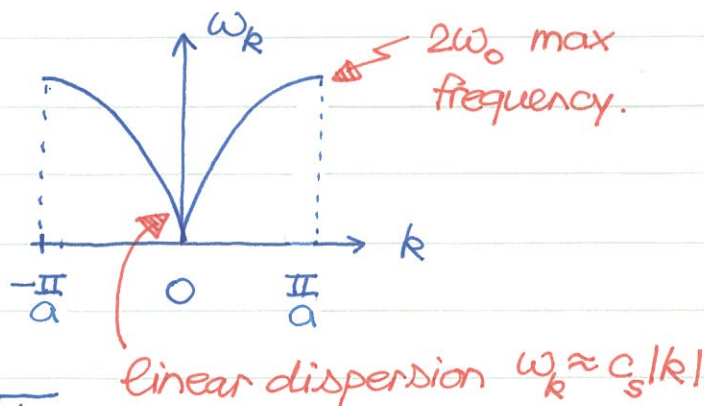 ω_k
2ω₀ max
frequency.
k
-π/a 0 π/a
linear dispersion ω_k ≈ c_s|k|